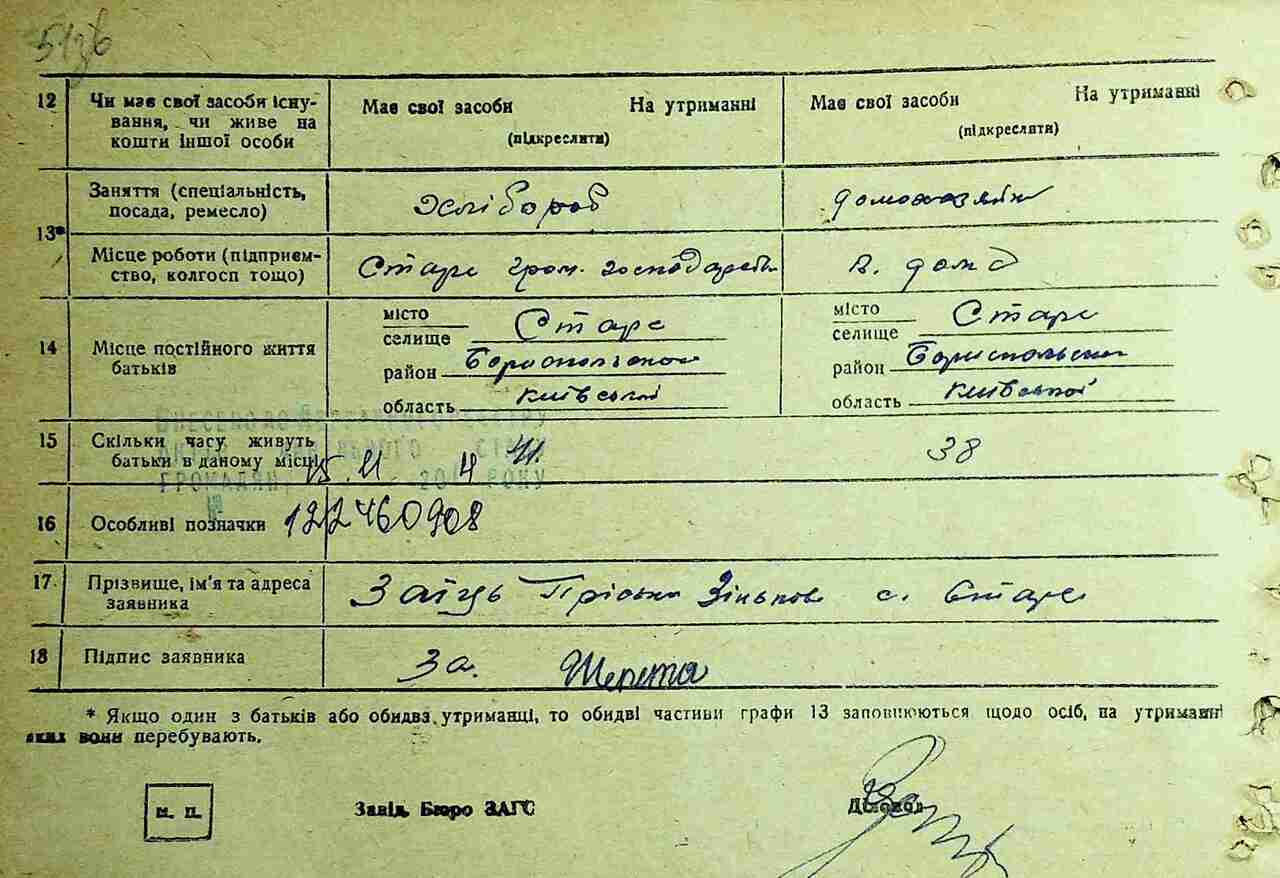 51зв
12 Чи має свої засоби існу-
вання, чи живе на
кошти іншої особи
Має свої засоби На утриманні
(підкреслити)
Має свої засоби На утриманні
(підкреслити)
13*
Заняття (спеціальність,
посада, ремесло)
Хлібороб
домохазяйка
Місце роботи (підприєм-
ство, колгосп тощо)
Старе гром. господарство
в. дома
14 Місце постійного життя
батьків
місто
селище Старе
район Бориспольской
область Київської
місто
селище Старе
район Бориспольской
область Київської
ВНЕСЕНО ДО ДЕРЖАВНОГО РЕЄСТРУ
АКТІВ ЦИВІЛЬНОГО СТАНУ
ГРОМАДЯН 15. 11 20 11 РОКУ
15 Скільки часу живуть
батьки в даному місці
41.
38
16 Особливі позначки
№ 122460908
17 Прізвище, ім'я та адреса
заявника
Заїць Пріська Зіньков с. Старе
18 Підпис заявника
За. Шерета
* Якщо один з батьків або обидва утриманці, то обидві частини графи 13 заповнюються щодо осіб, на утриманні
яких вони перебувають.
М. П.
Завід. Бюро ЗАГС
Діловод